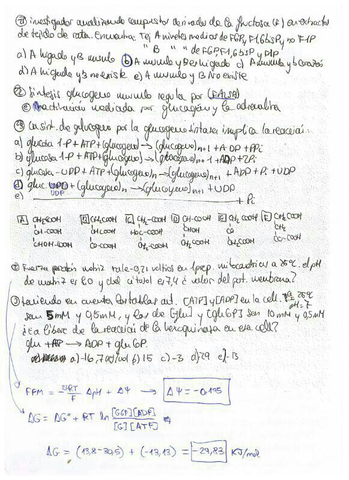 investigador analizando compuestos derivados de la fructosa (F) en extractos
de tejido de rata. Encuentra Tej A niveles medios de F6P y F1,6bisP y no F1P
" B " " de F6P, F1,6bisP y F1P
a) A hígado y B músculo b) A músculo y B hígado c) A músculo y B corazón
d) A hígado y B no existe e) A músculo y B no existe
Síntesis glucógeno músculo regula por (FALSA)
inactivación mediada por glucagón y la adrenalina
La sínt. de glucógeno por la glucógeno sintasa implica la reacción:
a) glucosa 1-P + ATP + (glucógeno)n → (glucógeno)n+1 + ADP + PPi
b) glucosa 1-P + ATP + (glucógeno)n → (glucógeno)n+1 + ADP + 2Pi
c) glucosa-UDP + ATP + (glucógeno)n → (glucógeno)n+1 + ADP + Pi + UDP
d) gluc. UDP + (glucógeno)n → (glucógeno)n+1 + UDP
e) + Pi
A CH2COOH B CH2COOH C CH2-COOH D CH-COOH E CH2COOH F CH2COOH
CH-COOH CH-COOH HOC-COOH CH-COOH CH2
CHOH-COOH CO-COOH CH2COOH CO-COOH
Fuerza protón motriz vale -0,21 voltios en 1 prep. mitocondrias a 25ºC. el pH
de matriz es 8,0 y del citosol es 7,4 ¿valor del pot. membrana?
teniendo en cuenta [ATP] y [ADP] en la cell. 25ºC pH=7
son 5mM y 0,5mM, y las de [glu] y [glu6P] son 10mM y 0,5mM
¿ea libre de la reacción de la hexoquinasa en esa cell?
glu + ATP → ADP + glu6P.
a) -16,7 kJ/mol b) 15 c) -3 d) 29 e) -13
FPM = ΔpH + Δψ → Δψ = -0,175
ΔG = ΔG° + RT ln [G6P][ADP]
[G][ATP]
ΔG = (13,8-30,5) + (-13,13) = -29,83 KJ/mol